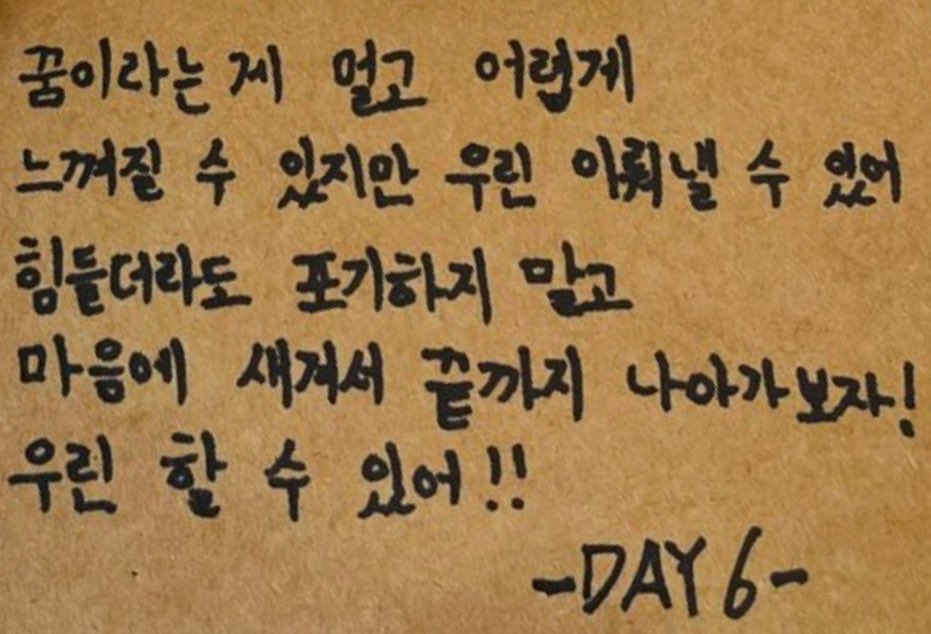 꿈이라는 게 멀고 어렵게
느껴질 수 있지만 우린 이뤄낼 수 있어
힘들더라도 포기하지 말고
마음에 새겨서 끝까지 나아가보자!
우린 할 수 있어!!
-DAY6-